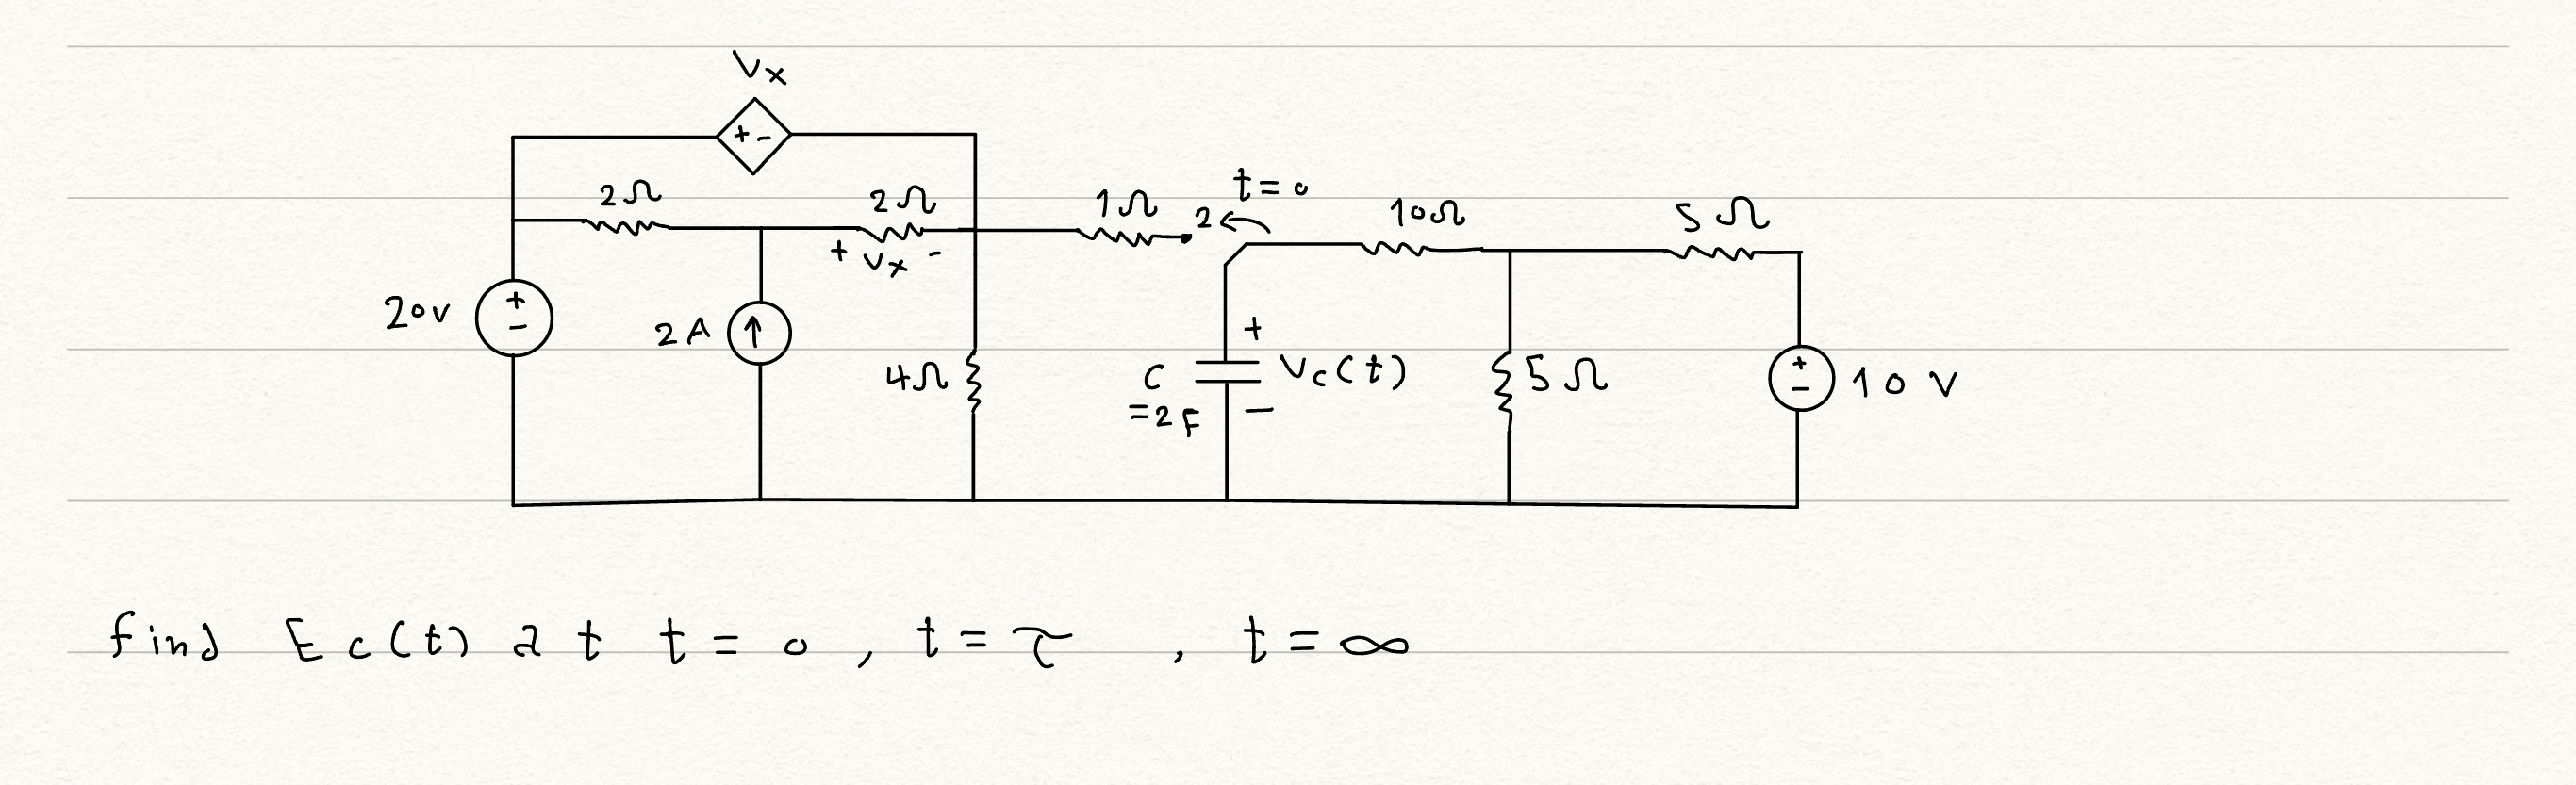 Vx
+ -
2Ω
2Ω
1Ω
t=0
2
10Ω
5Ω
+ Vx -
20V
+
-
2A
4Ω
C
=2F
+
Vc(t)
-
5Ω
+
-
10V
find Ec(t) at t = 0, t = τ, t = ∞